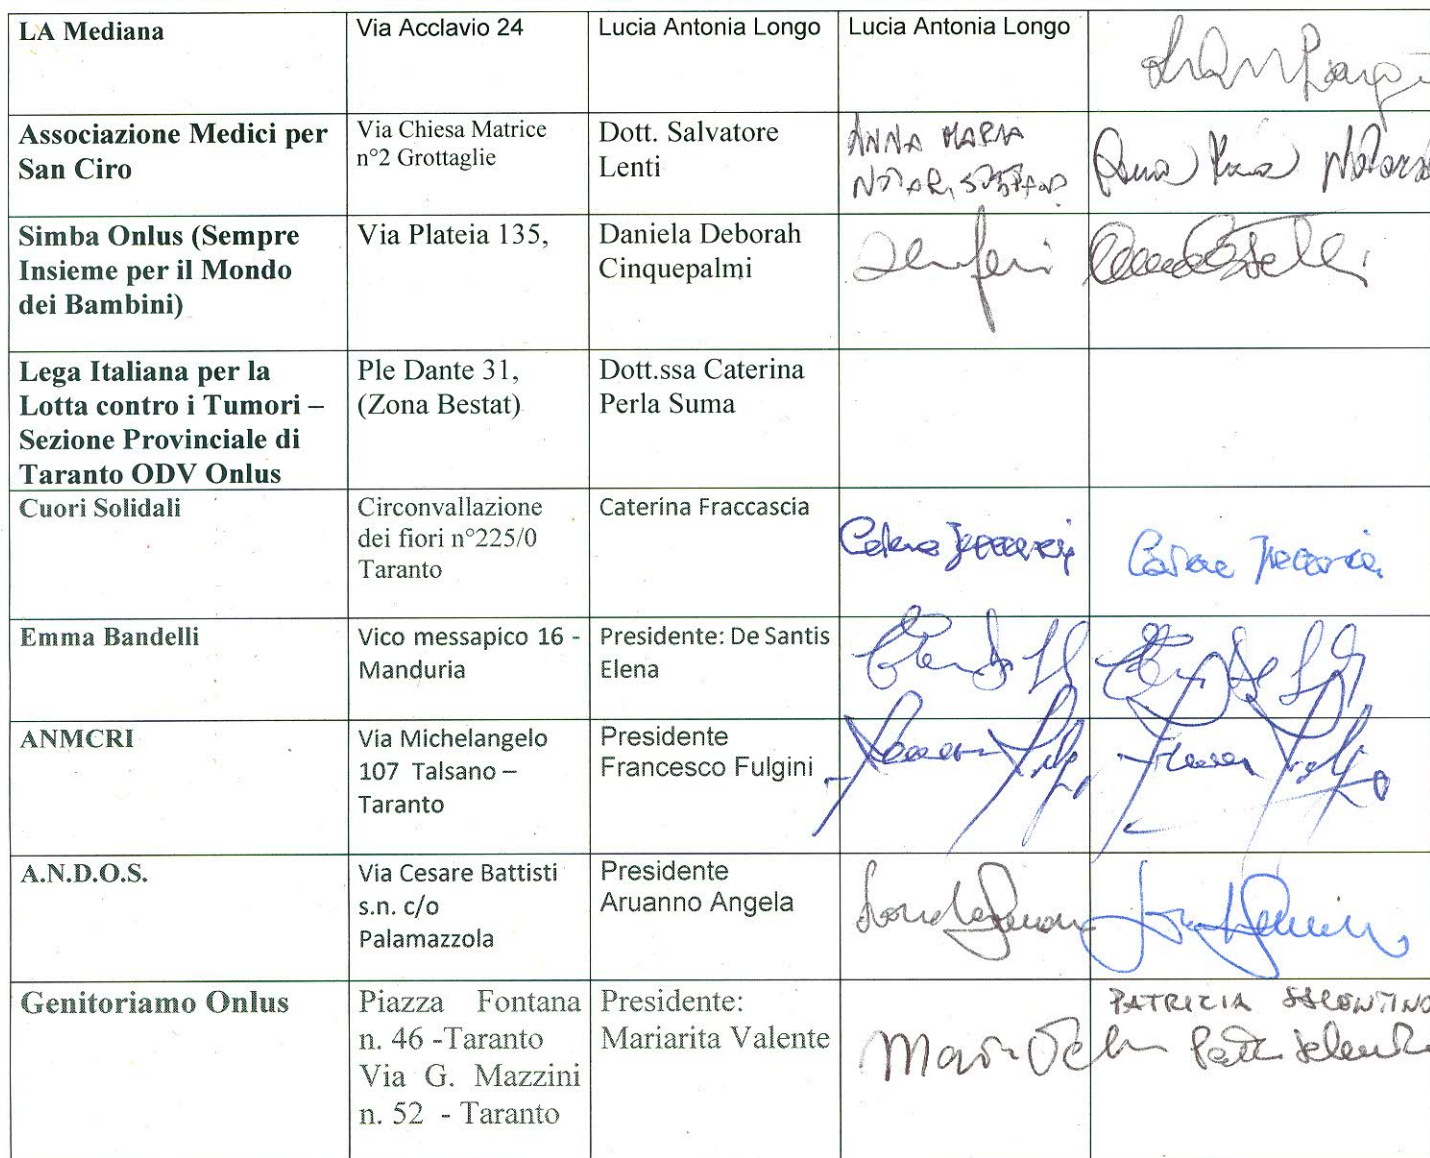 LA Mediana
Via Acclavio 24
Lucia Antonia Longo
Lucia Antonia Longo
Associazione Medici per
San Ciro
Via Chiesa Matrice
n°2 Grottaglie
Dott. Salvatore
Lenti
ANNA MARIA
Simba Onlus (Sempre
Insieme per il Mondo
dei Bambini)
Via Plateia 135,
Daniela Deborah
Cinquepalmi
Lega Italiana per la
Lotta contro i Tumori –
Sezione Provinciale di
Taranto ODV Onlus
Ple Dante 31,
(Zona Bestat)
Dott.ssa Caterina
Perla Suma
Cuori Solidali
Circonvallazione
dei fiori n°225/0
Taranto
Caterina Fraccascia
Emma Bandelli
Vico messapico 16 -
Manduria
Presidente: De Santis
Elena
ANMCRI
Via Michelangelo
107 Talsano –
Taranto
Presidente
Francesco Fulgini
A.N.D.O.S.
Via Cesare Battisti
s.n. c/o
Palamazzola
Presidente
Aruanno Angela
Genitoriamo Onlus
Piazza Fontana
n. 46 -Taranto
Via G. Mazzini
n. 52 - Taranto
Presidente:
Mariarita Valente
PATRIZIA